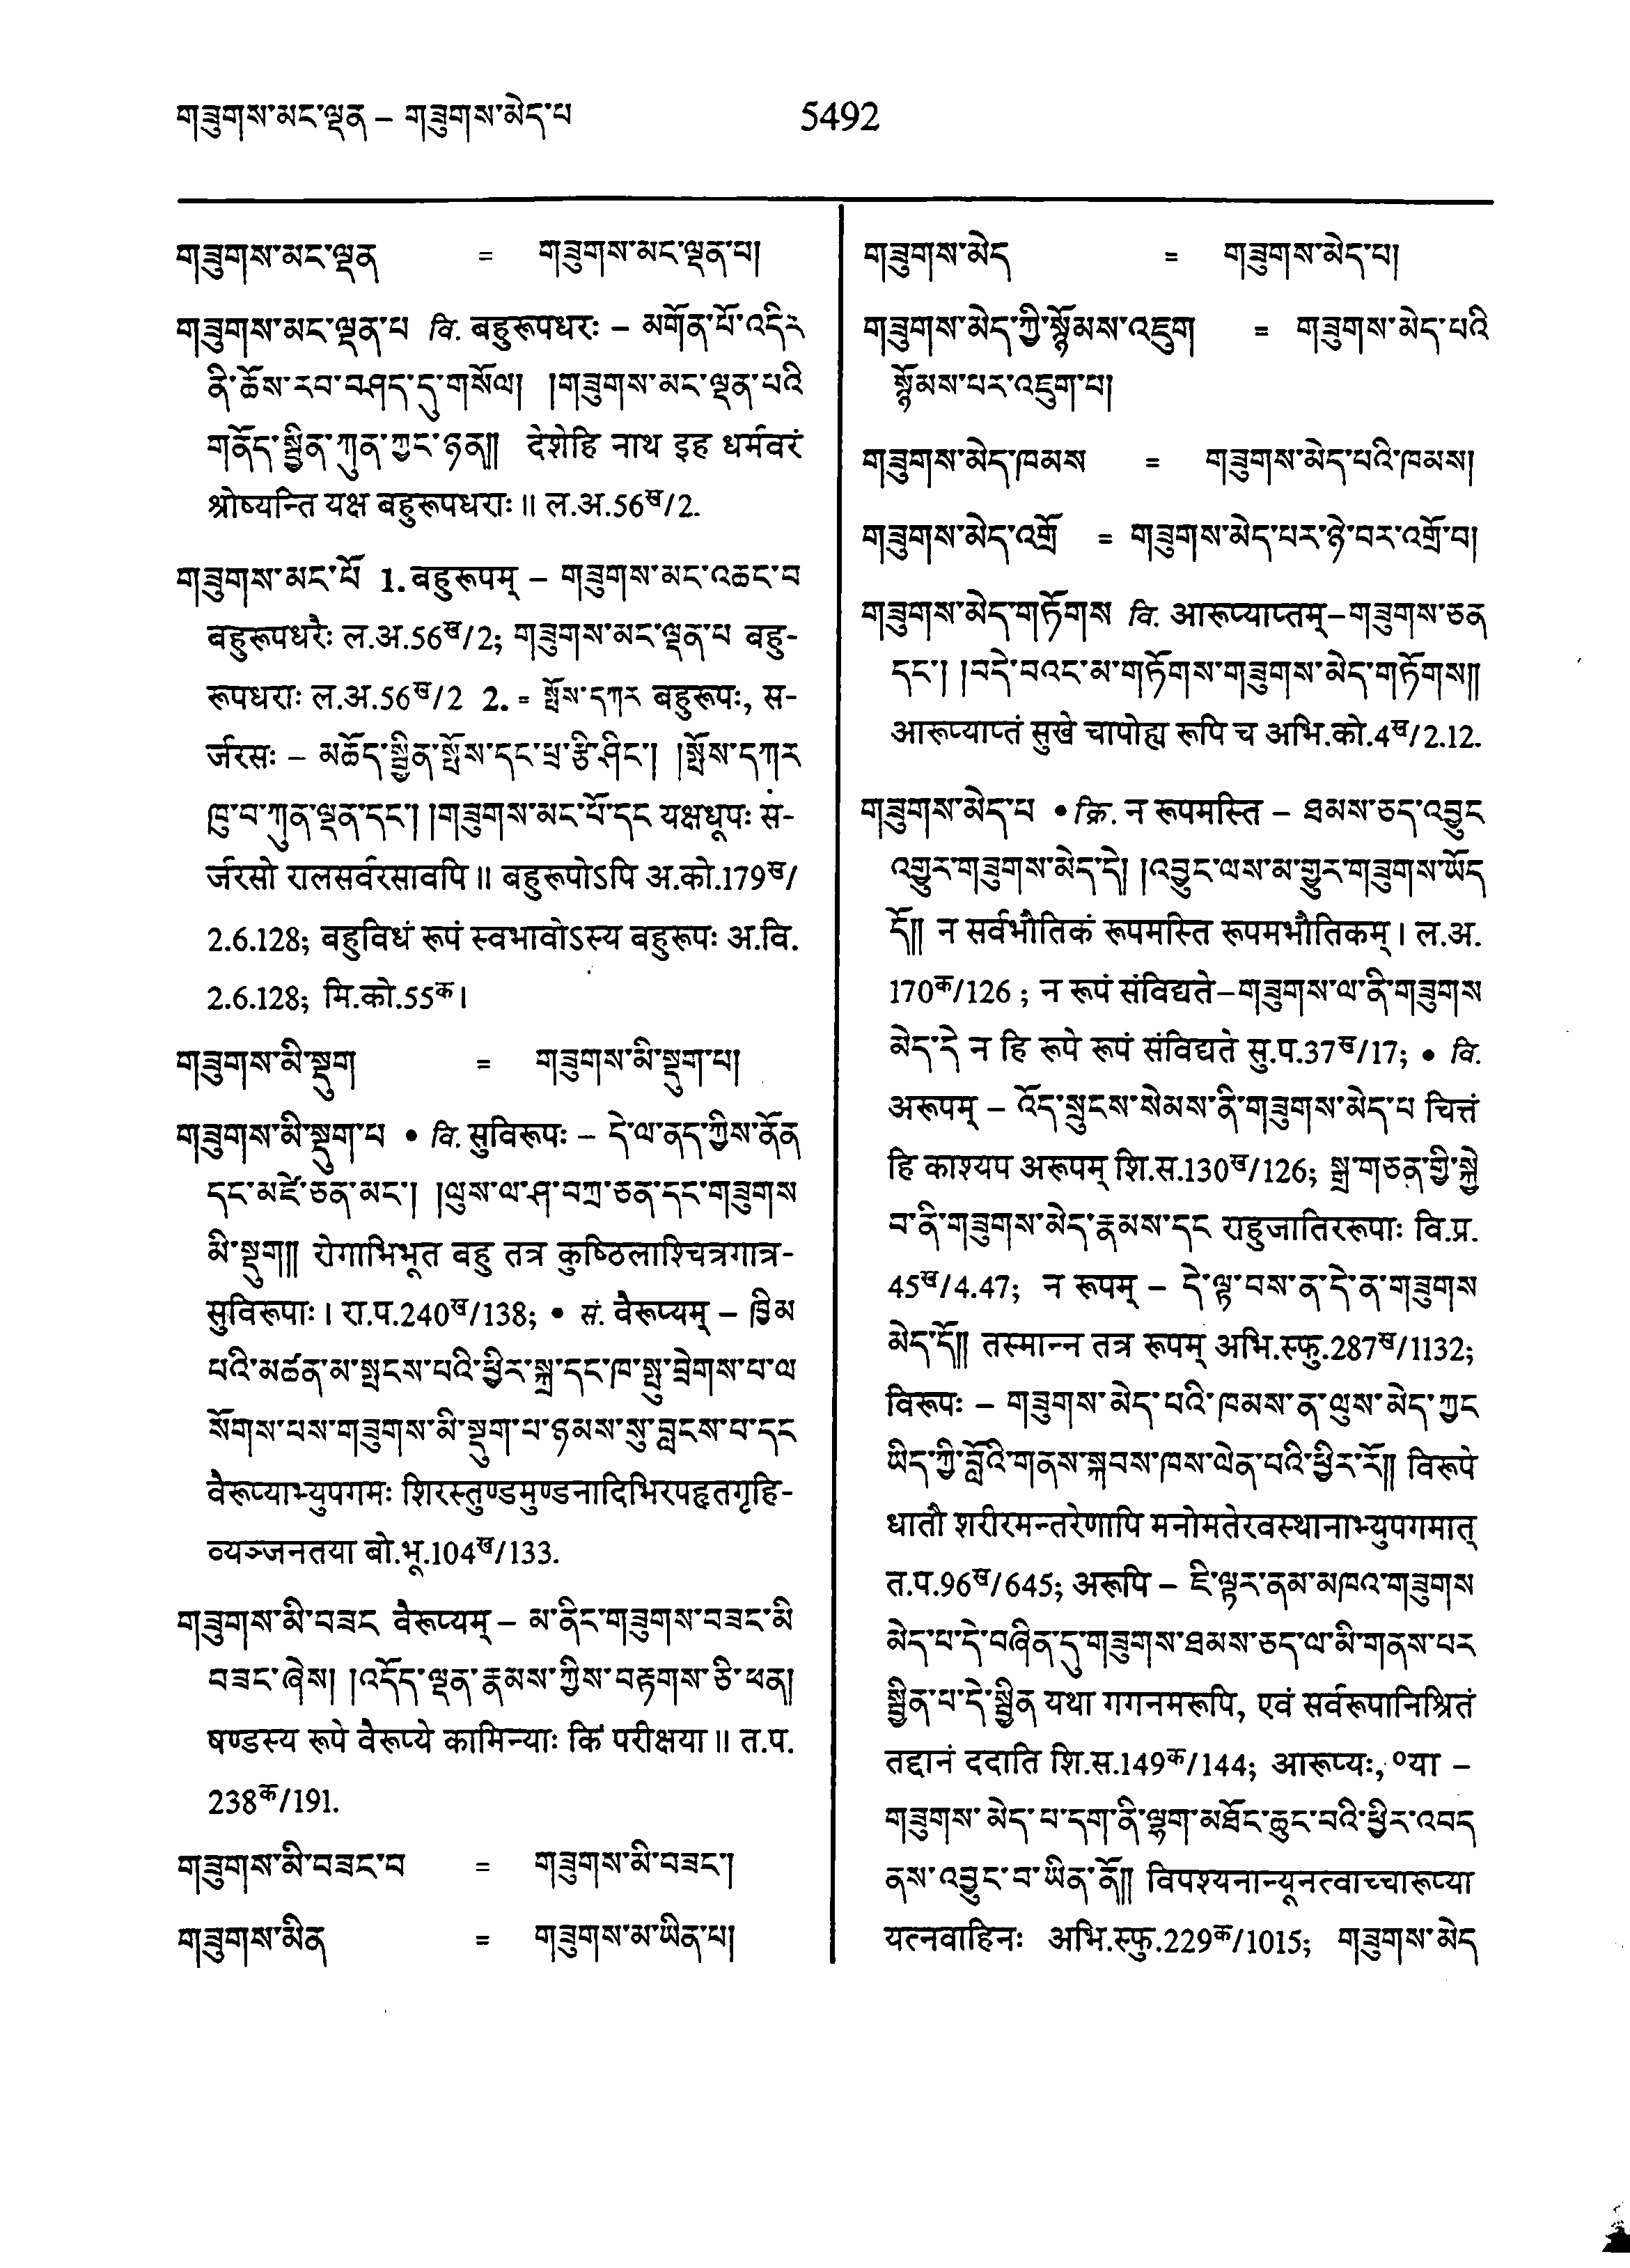 གཟུགས་མང་ལྡན – གཟུགས་མེད་པ 5492
གཟུགས་མང་ལྡན = གཟུགས་མང་ལྡན་པ།
གཟུགས་མང་ལྡན་པ वि. बहुरूपधरः – མགོན་པོ་འདིར
ནི་ཆོས་རབ་བཤད་དུ་གསོལ། །གཟུགས་མང་ལྡན་པའི
གནོད་སྦྱིན་ཀུན་ཀྱང་ཉན༎ देशेहि नाथ इह धर्मवरं
श्रोष्यन्ति यक्ष बहुरूपधराः ॥ ल.अ.56ख/2.
གཟུགས་མང་པོ 1. बहुरूपम् – གཟུགས་མང་འཆང་བ
बहुरूपधरैः ल.अ.56ख/2; གཟུགས་མང་ལྡན་པ बहु-
रूपधराः ल.अ.56ख/2 2. = སྤོས་དཀར बहुरूपः, स-
र्जरसः – མཆོད་སྦྱིན་སྤོས་དང་པྲ་རྩི་ཤིང་། །སྤོས་དཀར
ཁུ་བ་ཀུན་ལྡན་དང་། །གཟུགས་མང་པོ་དང यक्षधूपः स-
र्जरसो रालसर्वरसावपि ॥ बहुरूपोऽपि अ.को.179ख/
2.6.128; बहुविधं रूपं स्वभावोऽस्य बहुरूपः अ.वि.
2.6.128; मि.को.55क।
གཟུགས་མི་སྡུག = གཟུགས་མི་སྡུག་པ།
གཟུགས་མི་སྡུག་པ • वि. सुविरूपः – དེ་ལ་ནད་ཀྱིས་ནོན
དང་མཛེ་ཅན་མང་། །ལུས་ལ་ཤ་བཀྲ་ཅན་དང་གཟུགས
མི་སྡུག༎ रोगाभिभूत बहु तत्र कुष्ठिलाश्चित्रगात्र-
सुविरूपाः । रा.प.240ख/138; • सं. वैरूप्यम् – ཁྱིམ
པའི་མཚན་མ་སྤངས་པའི་ཕྱིར་སྐྲ་དང་ཁ་སྤུ་བྲེགས་པ་ལ
སོགས་པས་གཟུགས་མི་སྡུག་པ་ཉམས་སུ་བླངས་བ་དང
वैरूप्याभ्युपगमः शिरस्तुण्डमुण्डनादिभिरपहृतगृहि-
व्यञ्जनतया बो.भू.104ख/133.
གཟུགས་མི་བཟང वैरूप्यम् – མ་ནིང་གཟུགས་བཟང་མི
བཟང་ཞེས། །འདོད་ལྡན་རྣམས་ཀྱིས་བརྟགས་ཅི་ཕན།
षण्डस्य रूपे वैरूप्ये कामिन्याः किं परीक्षया ॥ त.प.
238क/191.
གཟུགས་མི་བཟང་བ = གཟུགས་མི་བཟང་།
གཟུགས་མིན = གཟུགས་མ་ཡིན་པ།
གཟུགས་མེད = གཟུགས་མེད་པ།
གཟུགས་མེད་ཀྱི་སྙོམས་འཇུག = གཟུགས་མེད་པའི
སྙོམས་པར་འཇུག་པ།
གཟུགས་མེད་ཁམས = གཟུགས་མེད་པའི་ཁམས།
གཟུགས་མེད་འགྲོ = གཟུགས་མེད་པར་ཉེ་བར་འགྲོ་བ།
གཟུགས་མེད་གཏོགས वि. आरूप्याप्तम् – གཟུགས་ཅན
དང་། །བདེ་བའང་མ་གཏོགས་གཟུགས་མེད་གཏོགས༎
आरूप्याप्तं सुखे चापोह्य रूपि च अभि.को.4ख/2.12.
གཟུགས་མེད་པ • क्रि. न रूपमस्ति – ཐམས་ཅད་འབྱུང
འགྱུར་གཟུགས་མེད་དེ། །འབྱུང་ལས་མ་གྱུར་གཟུགས་ཡོད
དོ༎ न सर्वभौतिकं रूपमस्ति रूपमभौतिकम् । ल.अ.
170क/126 ; न रूपं संविद्यते – གཟུགས་ལ་ནི་གཟུགས
མེད་དེ न हि रूपे रूपं संविद्यते सु.प.37ख/17; • वि.
अरूपम् – འོད་སྲུངས་སེམས་ནི་གཟུགས་མེད་པ चित्तं
हि काश्यप अरूपम् शि.स.130ख/126; སྒྲ་གཅན་གྱི་སྐྱེ
བ་ནི་གཟུགས་མེད་རྣམས་དང राहुजातिररूपाः वि.प्र.
45ख/4.47; न रूपम् – དེ་ལྟ་བས་ན་དེ་ན་གཟུགས
མེད་དོ༎ तस्मान्न तत्र रूपम् अभि.स्फु.287ख/1132;
विरूपः – གཟུགས་མེད་པའི་ཁམས་ན་ལུས་མེད་ཀྱང
ཡིད་ཀྱི་བློའི་གནས་སྐབས་ཁས་ལེན་པའི་ཕྱིར་རོ༎ विरूपे
धातौ शरीरमन्तरेणापि मनोमतेरवस्थानाभ्युपगमात्
त.प.96ख/645; अरूपि – ཇི་ལྟར་ནམ་མཁའ་གཟུགས
མེད་པ་དེ་བཞིན་དུ་གཟུགས་ཐམས་ཅད་ལ་མི་གནས་པར
སྦྱིན་པ་དེ་སྦྱིན यथा गगनमरूपि, एवं सर्वरूपानिश्रितं
तद्दानं ददाति शि.स.149क/144; आरूप्यः, ०या –
གཟུགས་མེད་པ་དག་ནི་ལྷག་མཐོང་ཆུང་བའི་ཕྱིར་འབད
ནས་འབྱུང་བ་ཡིན་ནོ༎ विपश्यनान्यूनत्वाच्चारूप्या
यत्नवाहिनः अभि.स्फु.229क/1015; གཟུགས་མེད